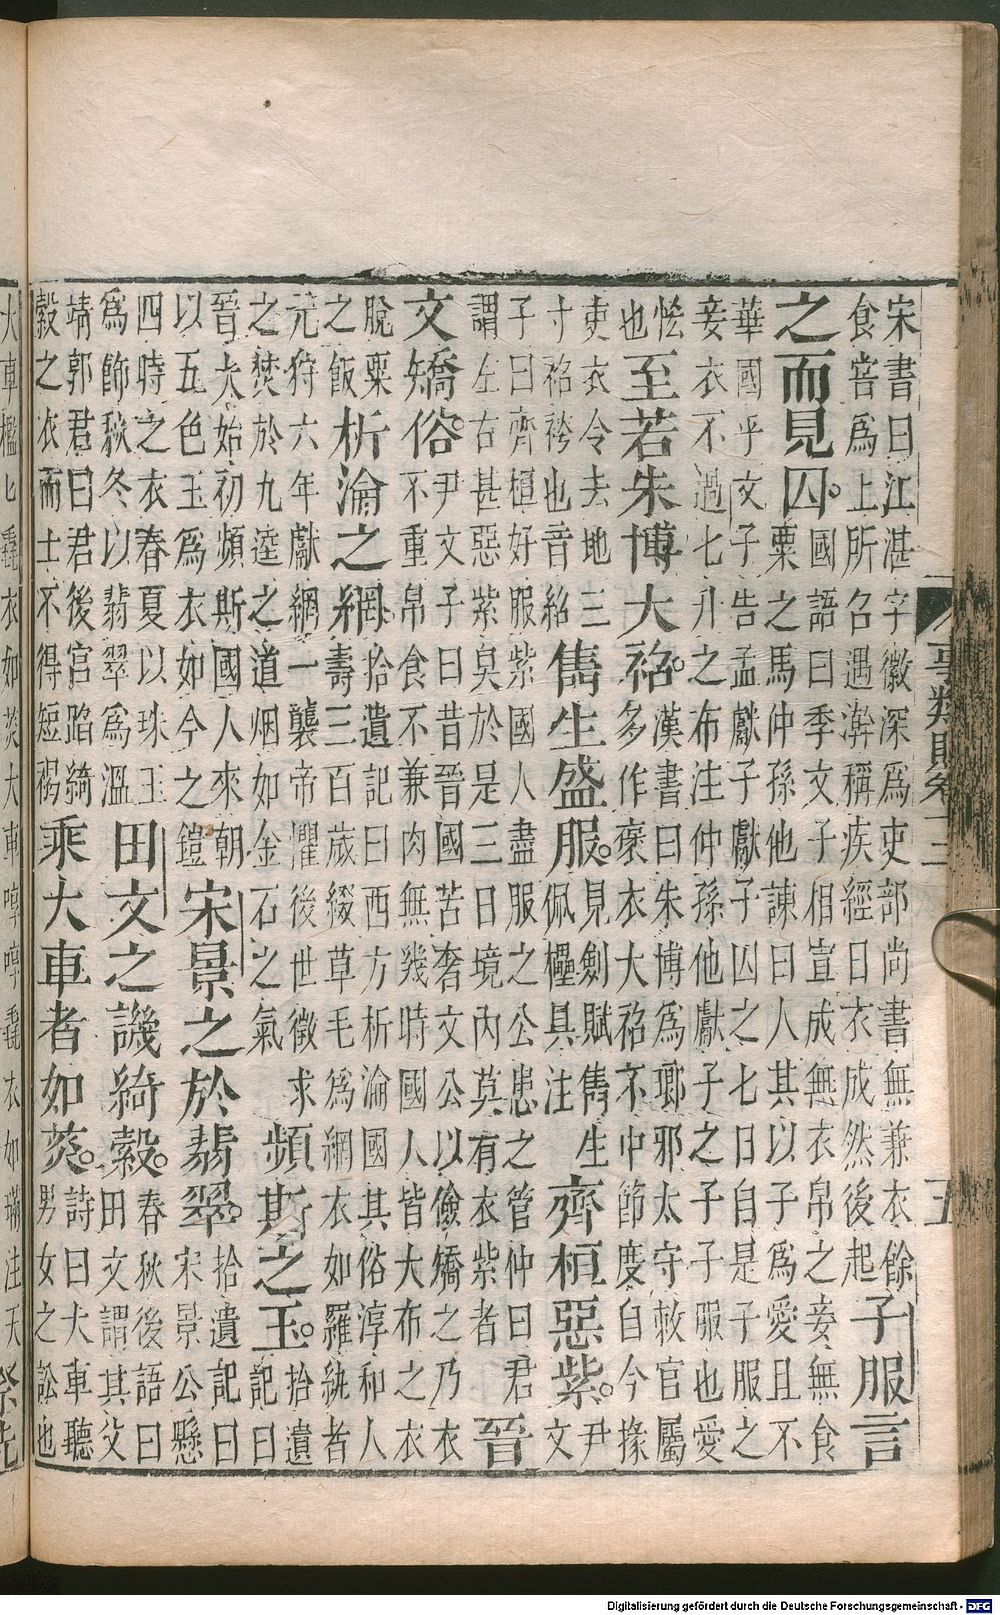 事類賦卷十二
五
宋書曰江湛字徽深為吏部尚書無兼衣餘
食嘗為上所召遇澣稱疾經日衣成然後起
子服言
之而見囚。
國語曰季文子相宣成無衣帛之妾無食
粟之馬仲孫他諫曰人其以子為愛且不
華國乎文子告孟獻子獻子囚之七日自是子服之
妾衣不過七升之布注仲孫他獻子之子子服也愛
恡
也
至若朱博大袑。
漢書曰朱博為瑯邪太守敕官屬
多作褒衣大袑不中節度自今掾
吏衣令去地三
寸袑袴也音紹
雋生盛服。
見劍賦雋生
佩櫑具注
齊桓惡紫。
尹
文
子曰齊桓好服紫國人盡服之公患之管仲曰君
謂左右甚惡紫臭於是三日境內莫有衣紫者
晉
文矯俗。
尹文子曰昔晉國苦奢文公以儉矯之乃衣
不重帛食不兼肉無幾時國人皆大布之衣
脫粟
之飯
析瀹之網。
拾遺記曰西方析瀹國其俗淳和人
壽三百歲綴草毛為網衣如羅紈者
元狩六年獻網一襲帝懼後世徵求
之焚於九逵之道烟如金石之氣
頻斯之玉。
拾遺
記曰
晉太始初頻斯國人來朝
以五色玉為衣如今之鎧
宋景之於翡翠。
拾遺記曰
宋景公懸
四時之衣春夏以珠玉
為飾秋冬以翡翠為溫
田文之譏綺縠。
春秋後語曰
田文謂其父
靖郭君曰君後宮蹈綺
縠之衣而士不得短褐
乘大車者如菼。
詩曰大車聽
男女之訟也
大車檻匕毳衣如菼大車啍啍毳衣如璊注天
Digitalisierung gefördert durch die Deutsche Forschungsgemeinschaft - DFG